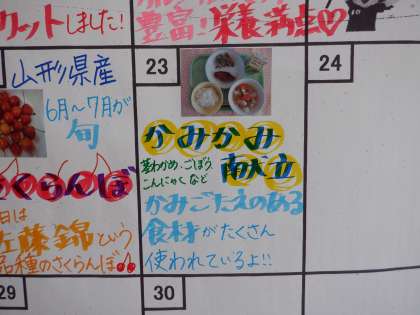 リットしました!
豊富!栄養満点♡
山形県産
6月～7月が
旬
さくらんぼ
日は
佐藤錦という
品種のさくらんぼ
23
かみかみ
茎わかめ、ごぼう、
こんにゃくなど
献立
かみごたえのある
食材がたくさん
使われているよ!!
24
29
30